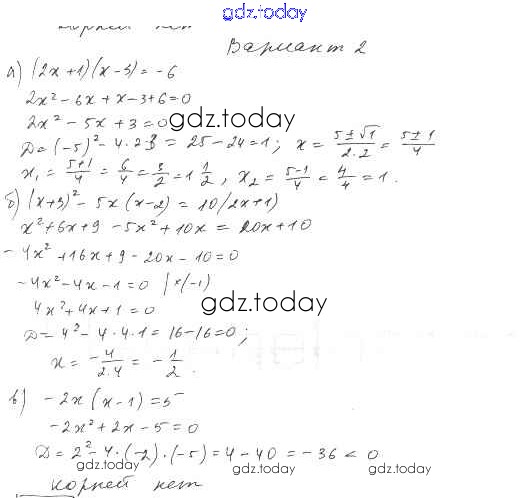 gdz.today
корней нет
Вариант 2
а) (2x+1)(x-3)=-6
2x²-6x+x-3+6=0
2x²-5x+3=0 gdz.today
D=(-5)²-4·2·3=25-24=1; x=(5±√1)/(2·2)=(5±1)/4
x₁=(5+1)/4=6/4=3/2=1 1/2, x₂=(5-1)/4=4/4=1.
б) (x+3)²-5x(x-2)=10(2x+1)
x²+6x+9-5x²+10x=20x+10
-4x²+16x+9-20x-10=0
-4x²-4x-1=0 |×(-1)
gdz.today
4x²+4x+1=0
D=4²-4·4·1=16-16=0;
x=-4/(2·4)=-1/2.
в) -2x(x-1)=5
gdz.today
-2x²+2x-5=0
D=2²-4·(-2)·(-5)=4-40=-36<0
gdz.today gdz.today gdz.today
корней нет